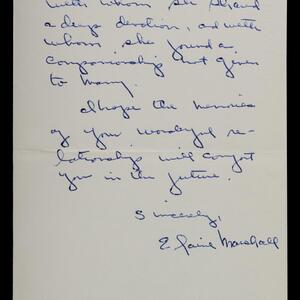 with whom she shared
a deep devotion, and with
whom she found a
companionship not given
to many.
I hope the memories
of your wonderful re-
lationship will comfort
you in the future.
Sincerely,
Elaine Marshall